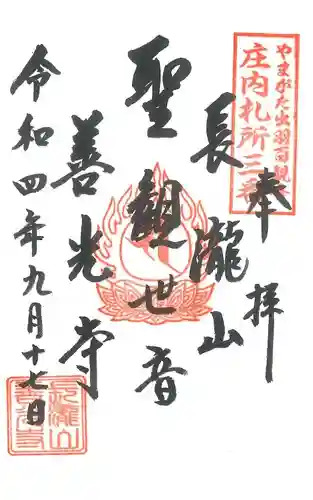 やまがた出羽百観音
庄内札所三番
奉拝
長瀧山
聖観世音
善光寺
令和四年九月十七日
長瀧山
善光寺